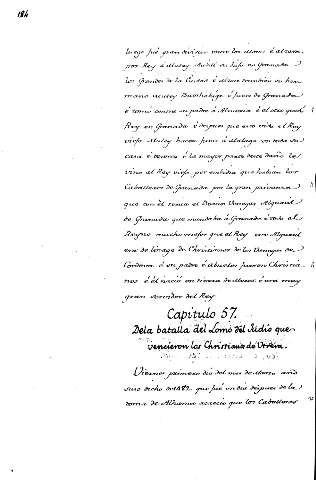 184
luego fué gran division entre los Moros é alzaron
por Rey á Muley Audili su hijo en Granada
los Grandes de la Ciudad é
mano Muley Baubdelige é fuese de Granada
é como entre su padre á Almeria é el otro quedó
Rey en Granada é despues que esto vido el Rey
viejo Muley hacen fuese á Malaga con toda su
casa é tesoros é la mayor parte deste daño les
vino al Rey viejo por embidia que habian los
Caballeros de Granada por la gran privanza
que con él tenia el Benegas Alguacil
de Granada que mandaba á Granada é todo el
Reyno mucho mejor que el Rey este Alguacil
era de linage de Christianos de los Benegas de
Cordova é su padre é abuelos fueron Christia
nos é él nació en tierra de Moros é era muy
gran servidor del Rey
Capitulo 57.
De la batalla del Lomo del Judio que
vencieron los Christianos de Utrera.
Viernes primero dia del mes de Marzo año
suso dicho de 1482 que fué un dia despues de la
toma de Alhama acaeció que los Caballeros